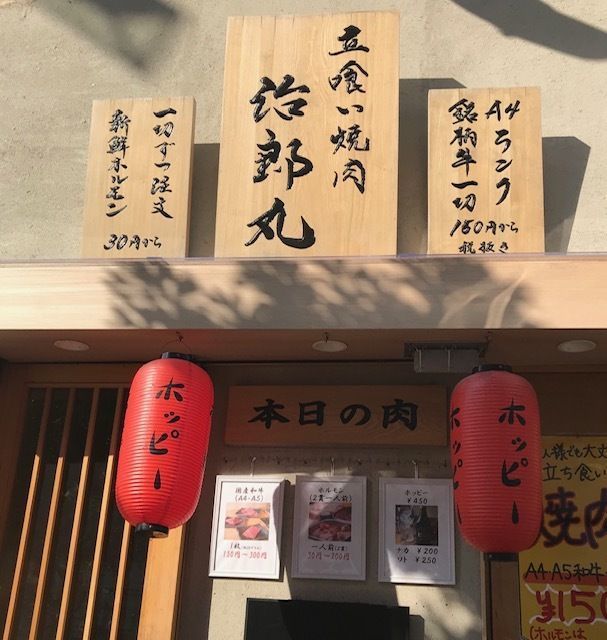 立喰い焼肉
治郎丸
一切ずつ注文
新鮮ホルモン
30円から
A4ランク
銘柄牛一切
150円から
税抜き
本日の肉
ホッピー
ホッピー
国産和牛
(A4・A5)
1枚
100円~300円
ホルモン
(2貫一人前)
一人前(2貫)
ホッピー
¥450
ナカ ¥200
ソト ¥250
人様でも大丈
立ち食い
焼肉
A4・A5和牛
¥150
(ホルモンは